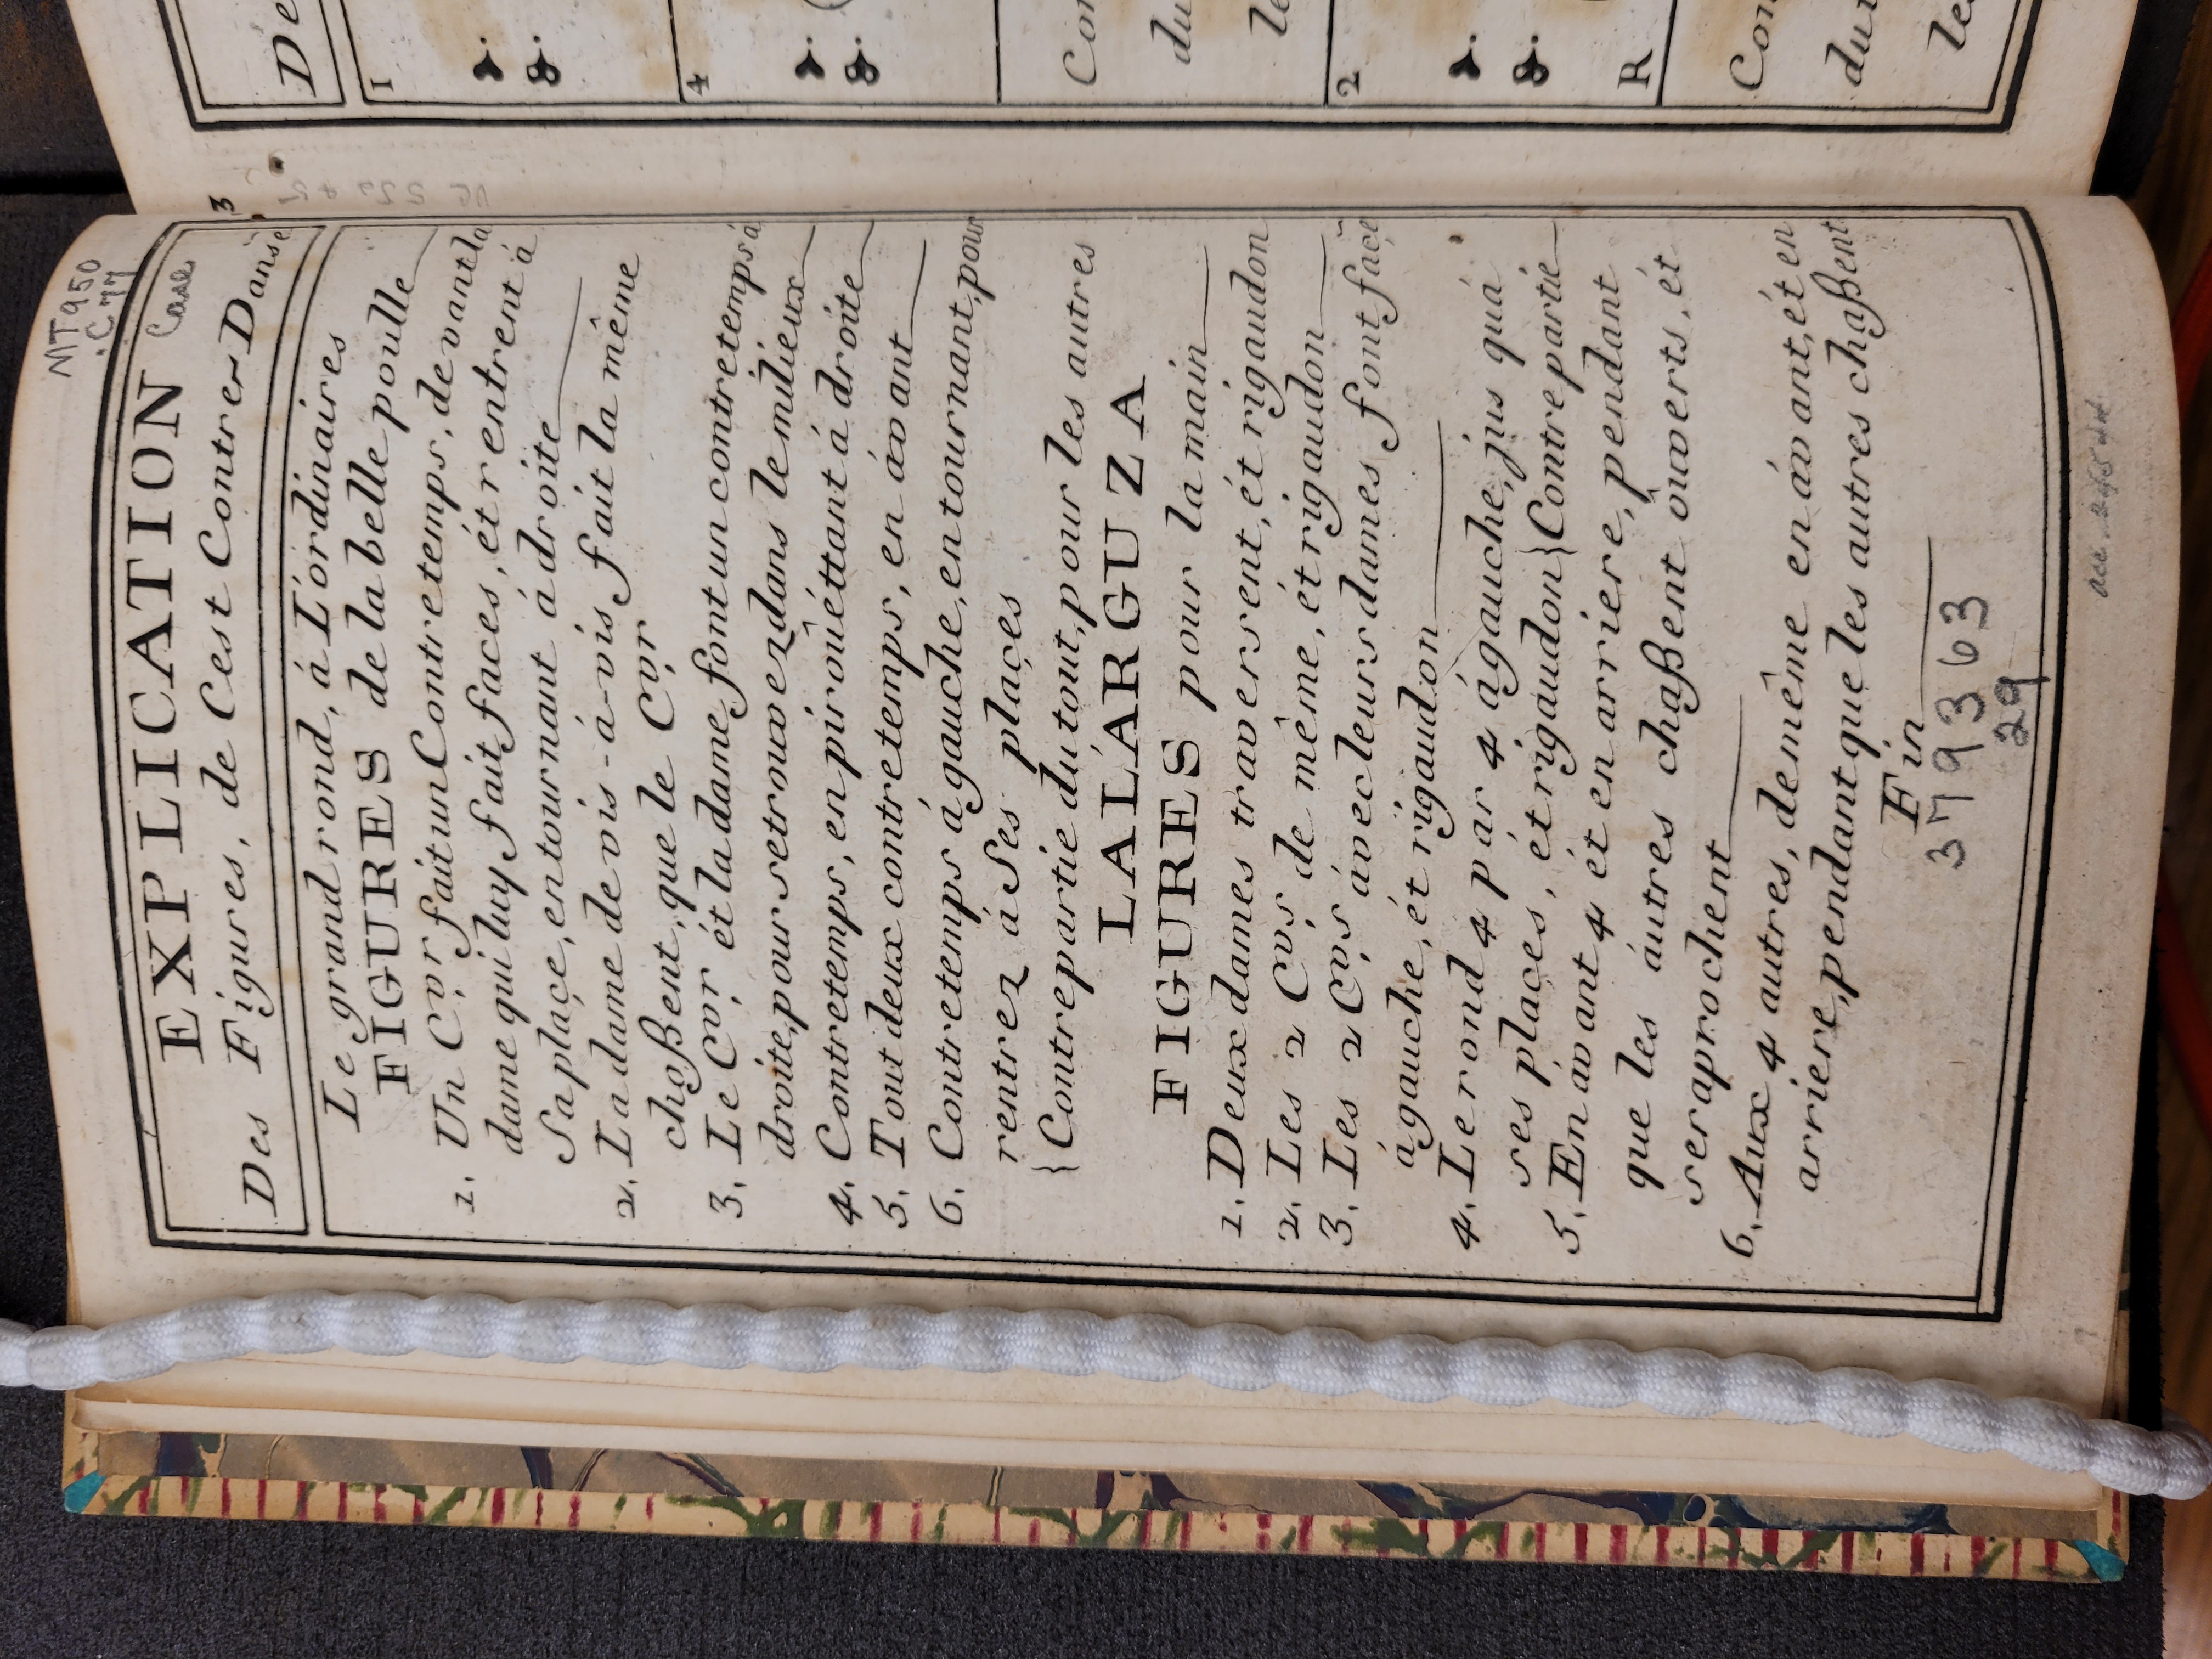 MT950
.C77
Case
3
EXPLICATION
Des Figures, de Cest Contrer Danse
Le grand rond, á L'órdinaires
FIGURES de la belle poulle
1. Un Cvr fait un Contretemps, devant la
dame qui luy fait faces, ét rentrent á
Sa plaçe, en tournant á droite
2. La dame de vis-á-vis fait la même
chaßent, que le Cvr
3. Le Cvr ét la dame font un contretemps á
droite, pour se trouvez dans le milieux
4. Contretemps, en pirouéttant á droite
5. Tout deux contretemps, en ávant
6. Contretemps á gauche, en tournant, pour
rentrez á Ses plaçes
{Contrepartie du tout, pour les autres
LA LÁRGUZA
FIGURES pour la main
1. Deux dames traversent, ét rigaudon
2. Les 2 Cvs de même, ét rigaudon
3. Les 2 Cvs ávec leurs dames font façe
ágauche, ét rigaudon
4. Le rond 4 par 4 ágauche, jus quá
ses plaçes, ét rigaudon {Contrepartie
5. En ávant 4 ét en arriere, pendant
que les áutres chaßent ôuverts, ét
se raprochent
6. Aux 4 autres, de même en ávant, ét en
arriere, pendant que les autres chaßent
Fin
379363
29
De
1
4
Con
du
le
2
R
Con
du
les